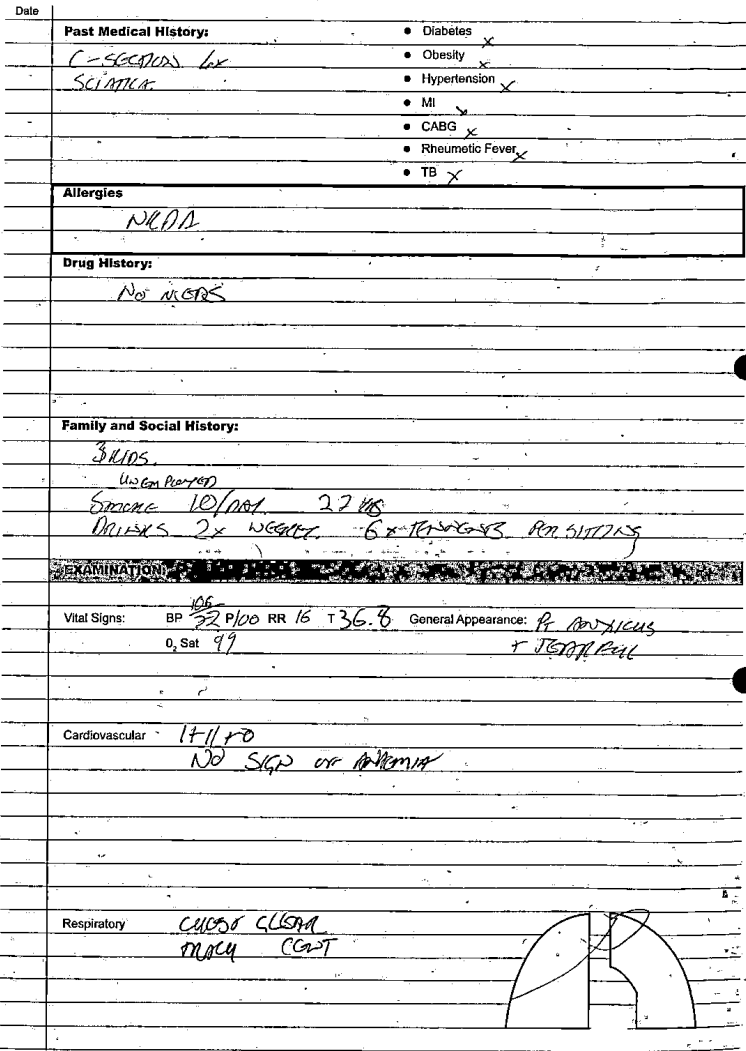 Date
Past Medical History:
C-SECTION
SCIATICA
• Diabetes x
• Obesity x
• Hypertension x
• MI x
• CABG x
• Rheumetic Fever x
• TB x
Allergies
NKDA
Drug History:
NO MEDS
Family and Social History:
3 KIDS.
UNEMPLOYED
SMOKE 10/DAY 22 YRS
DRINKS 2x WEEKLY 6 x PER SITTING
EXAMINATION:
Vital Signs: BP 106 P100 RR 16 T 36.8 General Appearance: Pt ANXIOUS
O2 Sat 99 + TEARFUL
Cardiovascular I+II+0
NO SIGN OF ANEMIA
Respiratory CHEST CLEAR
CENT